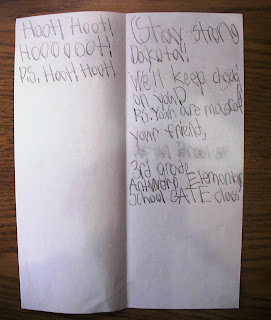 Hoot! Hoot!
Hooooot!
P.S. Hoot! Hoot!
Stay strong
Dakota!
We'll keep
on
P.S. Your are
your friend,
3rd grade
Antwerp Elementary
School GATE class